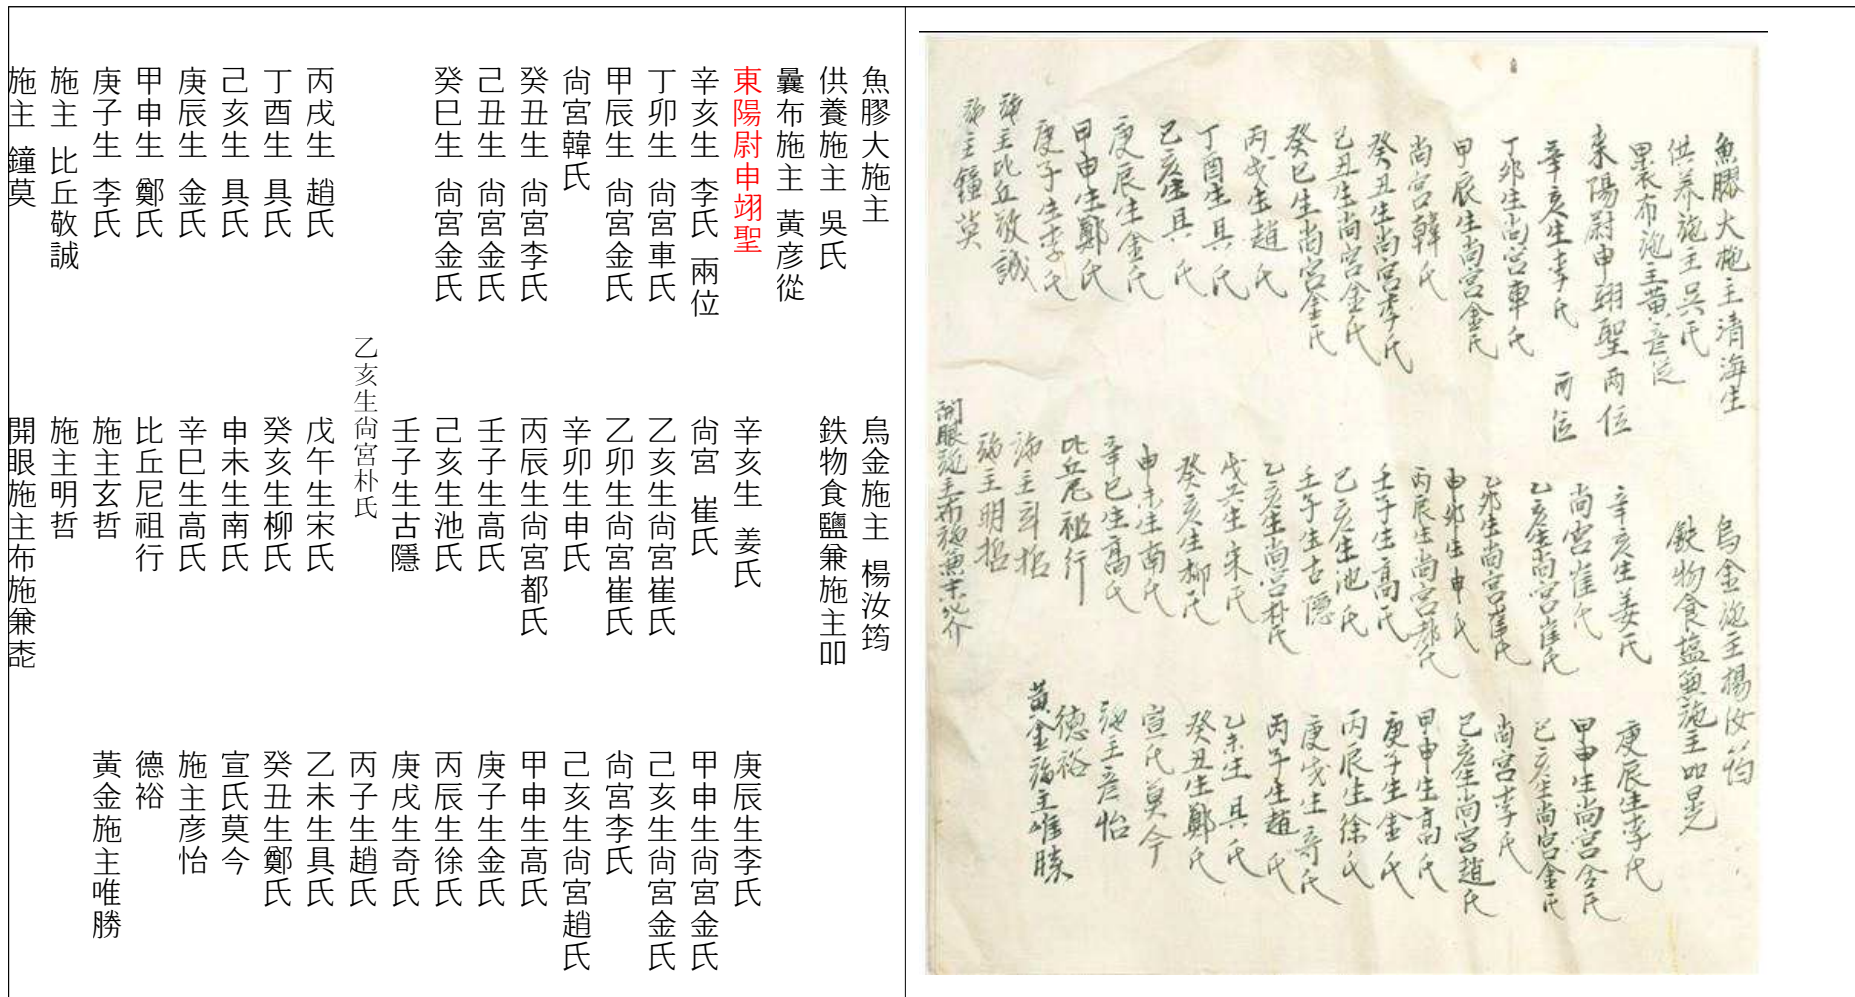 魚膠大施主
供養施主 吳氏
曩布施主 黃彦從
東陽尉申翊聖
辛亥生 李氏 兩位
丁卯生 尙宮車氏
甲辰生 尙宮金氏
尙宮韓氏
癸丑生 尙宮李氏
己丑生 尙宮金氏
癸巳生 尙宮金氏
丙戌生 趙氏
丁酉生 具氏
己亥生 具氏
庚辰生 金氏
甲申生 鄭氏
庚子生 李氏
施主 比丘敬誠
施主 鐘莫
烏金施主 楊汝筠
鉄物食鹽兼施主叩
辛亥生 姜氏
尙宮 崔氏
乙亥生尙宮崔氏
乙卯生尙宮崔氏
辛卯生申氏
丙辰生尙宮都氏
壬子生高氏
己亥生池氏
壬子生古隱
乙亥生尙宮朴氏
戊午生宋氏
癸亥生柳氏
申未生南氏
辛巳生高氏
比丘尼祖行
施主玄哲
施主明哲
開眼施主布施兼
庚辰生李氏
甲申生尙宮金氏
己亥生尙宮金氏
尙宮李氏
己亥生尙宮趙氏
甲申生高氏
庚子生金氏
丙辰生徐氏
庚戌生奇氏
丙子生趙氏
乙未生具氏
癸丑生鄭氏
宣氏莫今
施主彦怡
德裕
黃金施主唯勝
魚膠大施主清海生
供养施主吳氏
布施主黄彦従
東陽尉申翊聖兩位
辛亥生李氏 兩位
丁卯生尚宮車氏
甲辰生尚宮金氏
尚宮韓氏
癸丑生尚宮李氏
己丑生尚宮金氏
癸巳生尚宮金氏
丙戌生趙氏
丁酉生具氏
己亥生具氏
庚辰生金氏
甲申生鄭氏
庚子生李氏
施主比丘敬誠
施主鐘莫
烏金施主楊汝筠
鉄物食塩兼施主叩晃
辛亥生姜氏
尚宮崔氏
乙亥生尚宮崔氏
乙卯生尚宮崔氏
辛卯生申氏
丙辰生尚宮都氏
壬子生高氏
己亥生池氏
壬子生古隱
乙亥生尚宮朴氏
戊午生宋氏
癸亥生柳氏
申未生南氏
辛巳生高氏
比丘尼祖行
施主玄哲
施主明哲
開眼施主布施兼
庚辰生李氏
甲申生尚宮金氏
己亥生尚宮金氏
尚宮李氏
己亥生尚宮趙氏
甲申生高氏
庚子生金氏
丙辰生徐氏
庚戌生奇氏
丙子生趙氏
乙未生具氏
癸丑生鄭氏
宣氏莫今
施主彦怡
德裕
黃金施主唯勝